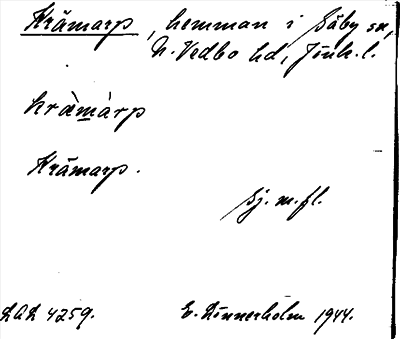 Krämarp, hemman i Säby sn,
N. Vedbo hd, Jönk. l.
kræ̀màrp
Krämarp.
Sj. m. fl.
LAL 4259. E. Linnerholm 1944.